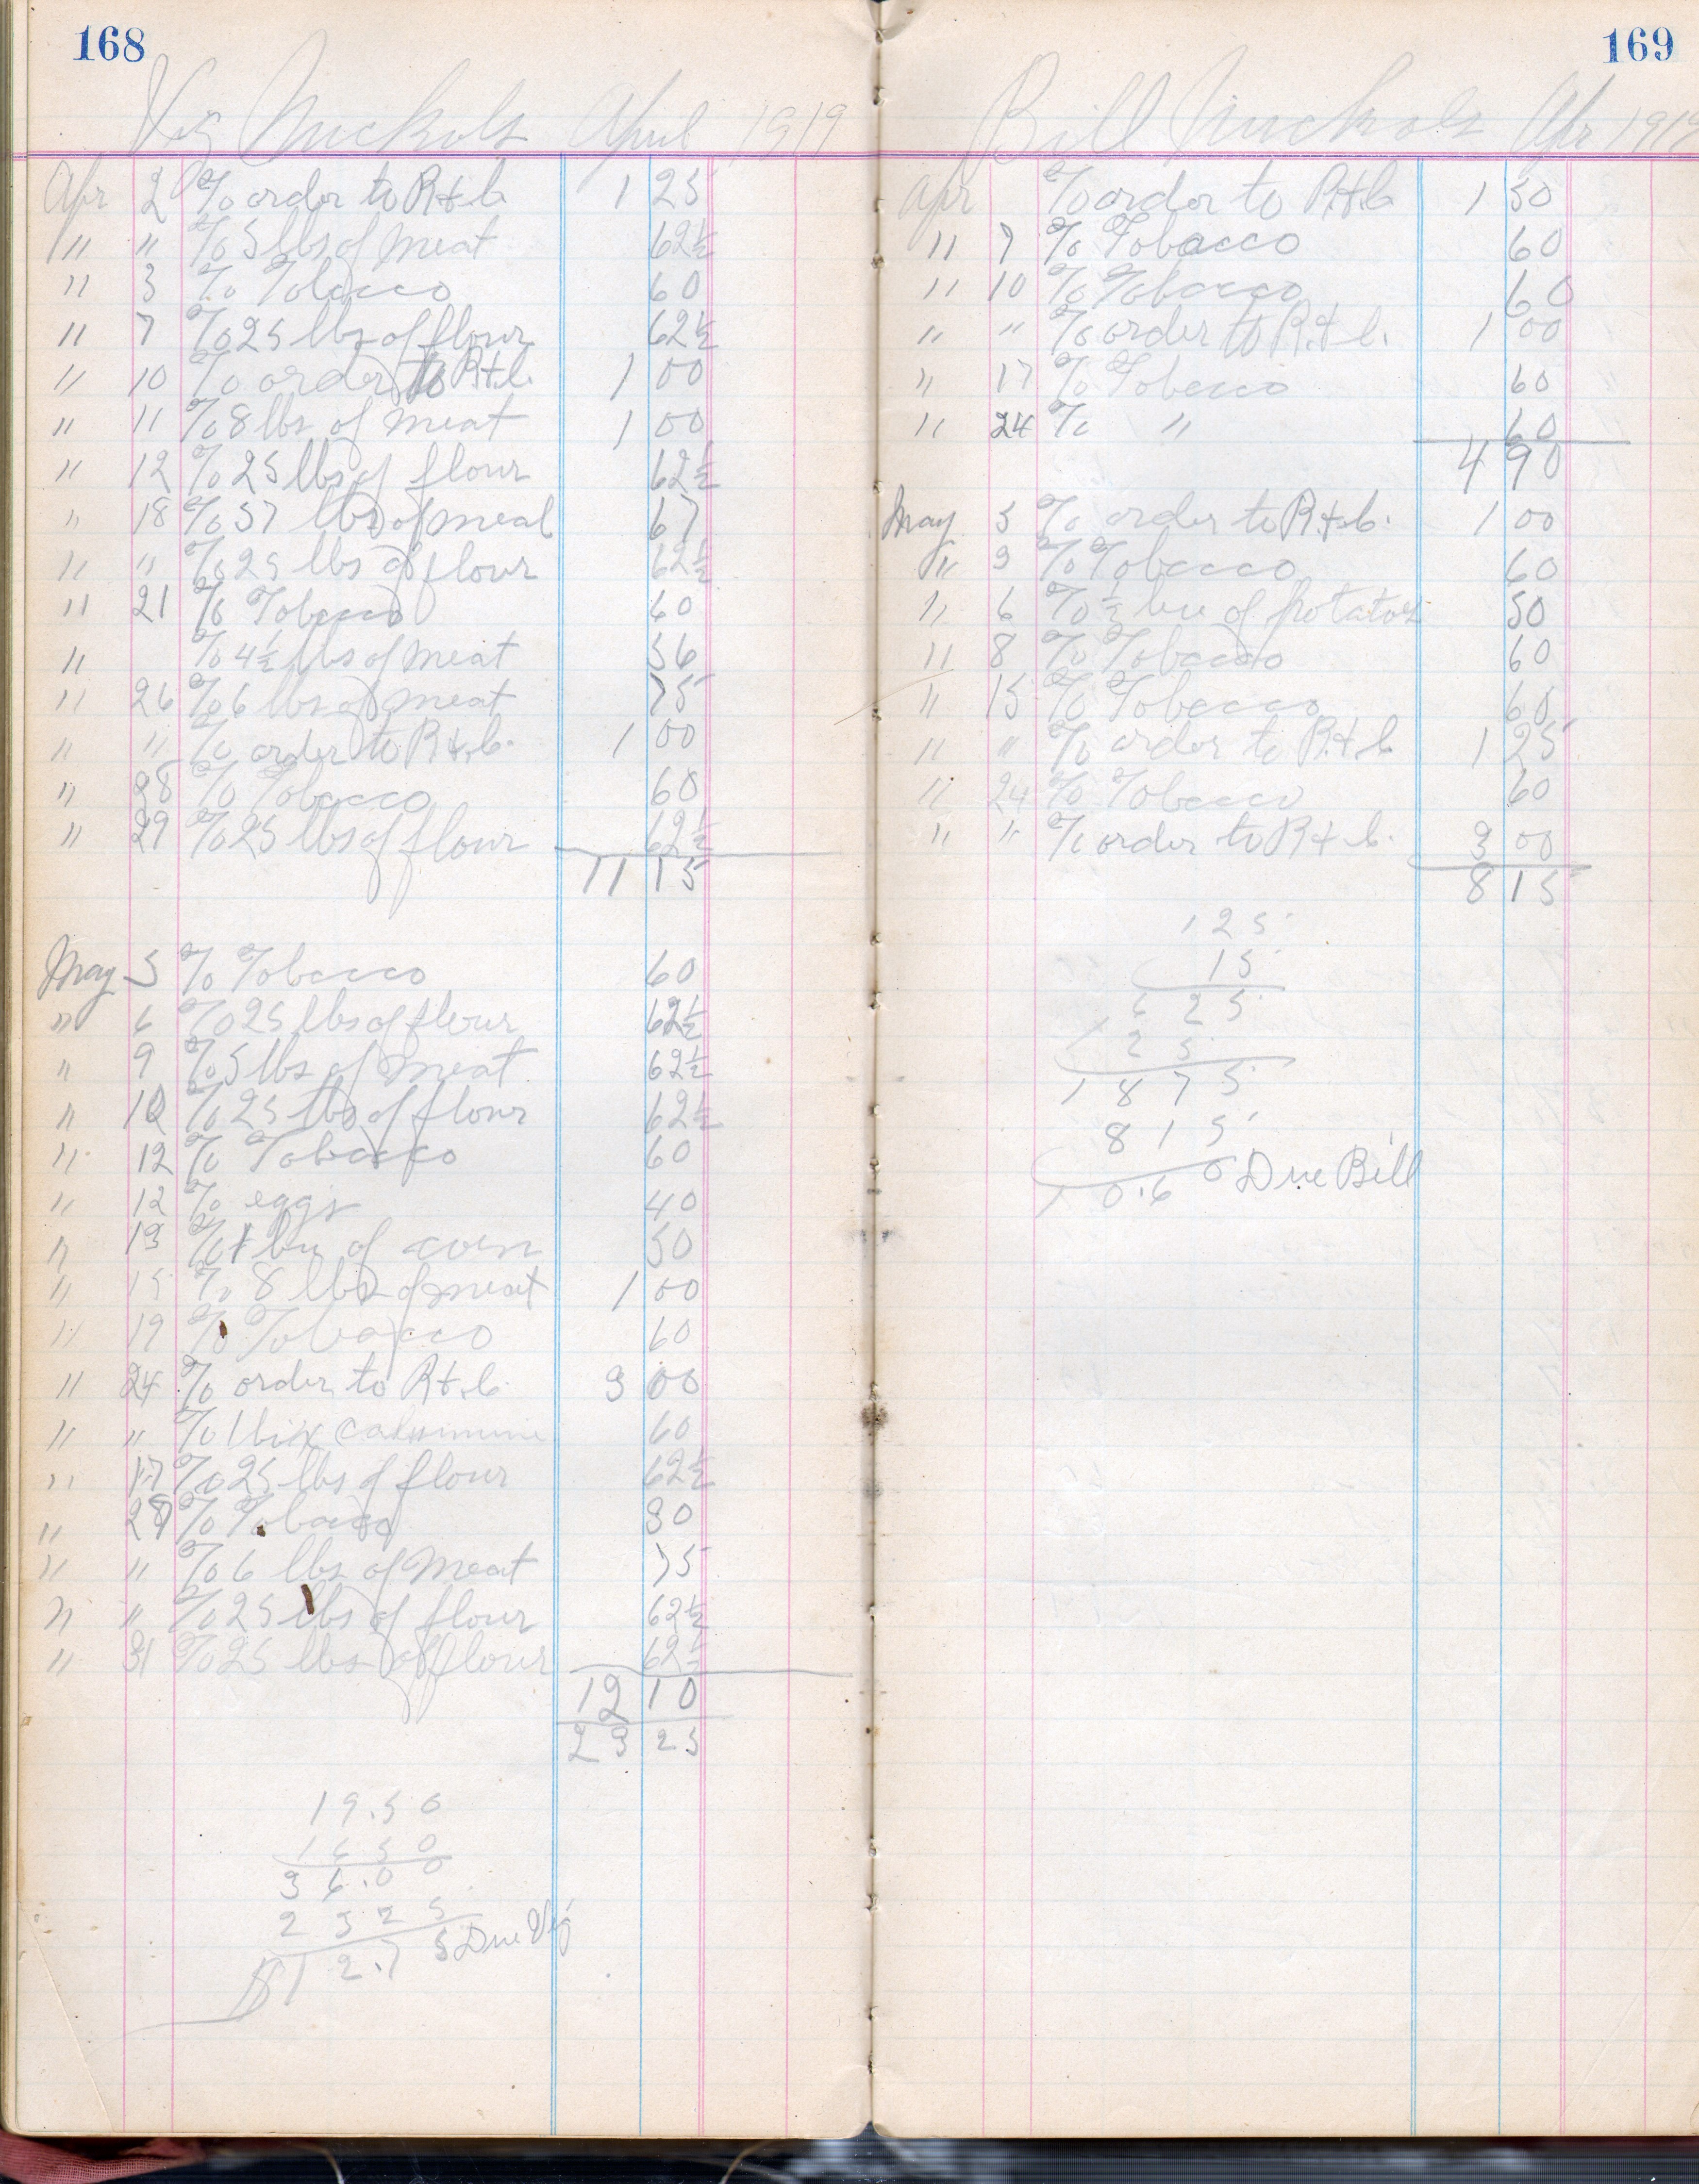 168
Nuckols April 1919
Apr 2 % order to R+b 1 25
" " % 5 lbs of meat 62½
" 3 % Tobacco 60
" 7 % 25 lbs of flour 62½
" 10 % order to R+b. 1 00
" 11 % 8 lbs of meat 1 00
" 12 % 25 lbs of flour 62½
" 18 % 57 lbs of meal 67
" " % 25 lbs of flour 62½
" 21 % Tobacco 60
" % 4½ lbs of meat 56
" 26 % 6 lbs of meat 75
" " % order to R+b. 1 00
" 28 % Tobacco 60
" 29 % 25 lbs of flour 62½
11 15
May 5 % Tobacco 60
" 6 % 25 lbs of flour 62½
" 9 % 5 lbs of meat 62½
" 10 % 25 lbs of flour 62½
" 12 % Tobacco 60
" 12 % eggs 40
" 13 % 1 bu of corn 50
" 15 % 8 lbs of meat 1 00
" 19 % Tobacco 60
" 24 % order to R+b. 3 00
" " % 1 60
" 17 % 25 lbs of flour 62½
" % Tobacco 30
" " % 6 lbs of meat 75
" " % 25 lbs of flour 62½
" 31 % 25 lbs of flour 62½
12 10
23 25
19.50
16 50
36.00
23 25
$12.75 Due
169
Bill Nuckols Apr 1919
Apr % order to R+b 1 50
" 7 % Tobacco 60
" 10 % Tobacco 60
" " % order to R+b. 1 00
" 17 % Tobacco 60
" 24 % " 60
4 90
May 5 % order to R+b. 1 00
" 3 % Tobacco 60
" 6 % ½ bu of potatoes 50
" 8 % Tobacco 60
" 15 % Tobacco 60
" " % order to R+b 1 25
" 24 % Tobacco 60
" " % order to R+b. 3 00
8 15
125
15
625
125
1875
815
10.60 Due Bill